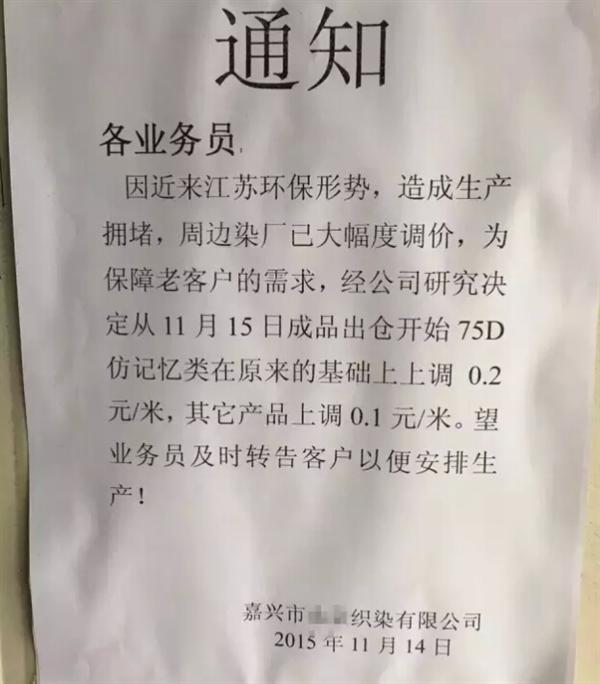 通知
各业务员,
因近来江苏环保形势，造成生产
拥堵，周边染厂已大幅度调价，为
保障老客户的需求，经公司研究决
定从11月15日成品出仓开始75D
仿记忆类在原来的基础上上调 0.2
元/米，其它产品上调0.1元/米。望
业务员及时转告客户以便安排生
产！
嘉兴市 织染有限公司
2015年11月14日